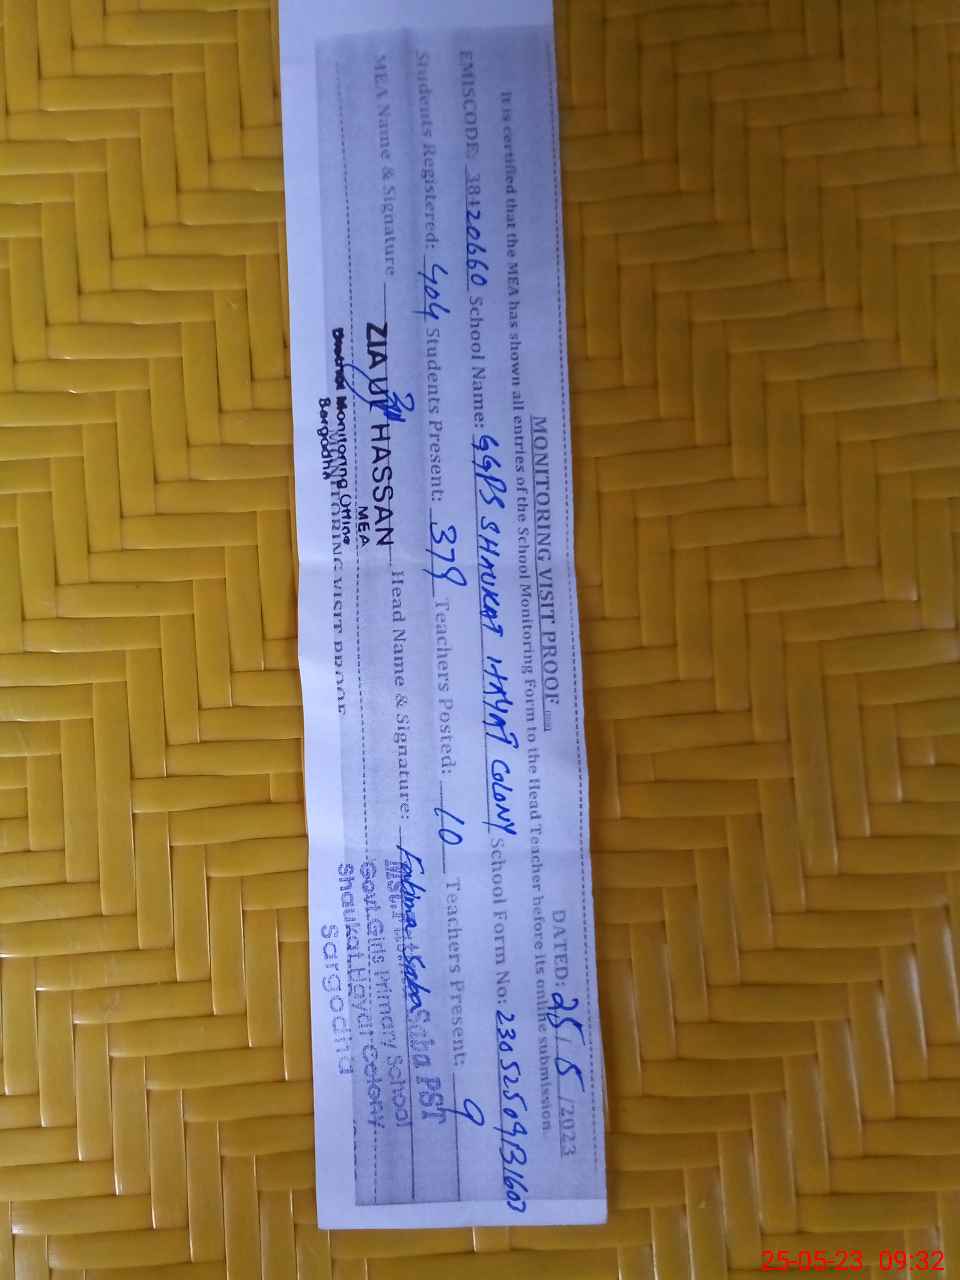 MONITORING VISIT PROOF
DATED: 25/5/2023
It is certified that the MEA has shown all entries of the School Monitoring Form to the Head Teacher before its online submission.
EMISCODE: 38420660 School Name: GGPS SHAUKAT HAYAT COLONY School Form No:
Students Registered: 404 Students Present: 379 Teachers Posted: 10 Teachers Present: 9
MEA Name & Signature ZIA UL HASSAN Head Name & Signature: Fatima Saba
MEA
Monitoring Office
Sargodha
Saba PST
Govt. Girls Primary School
Shaukat Hayat Colony
Sargodha
MONITORING VISIT PROOF
25-05-23 09:32